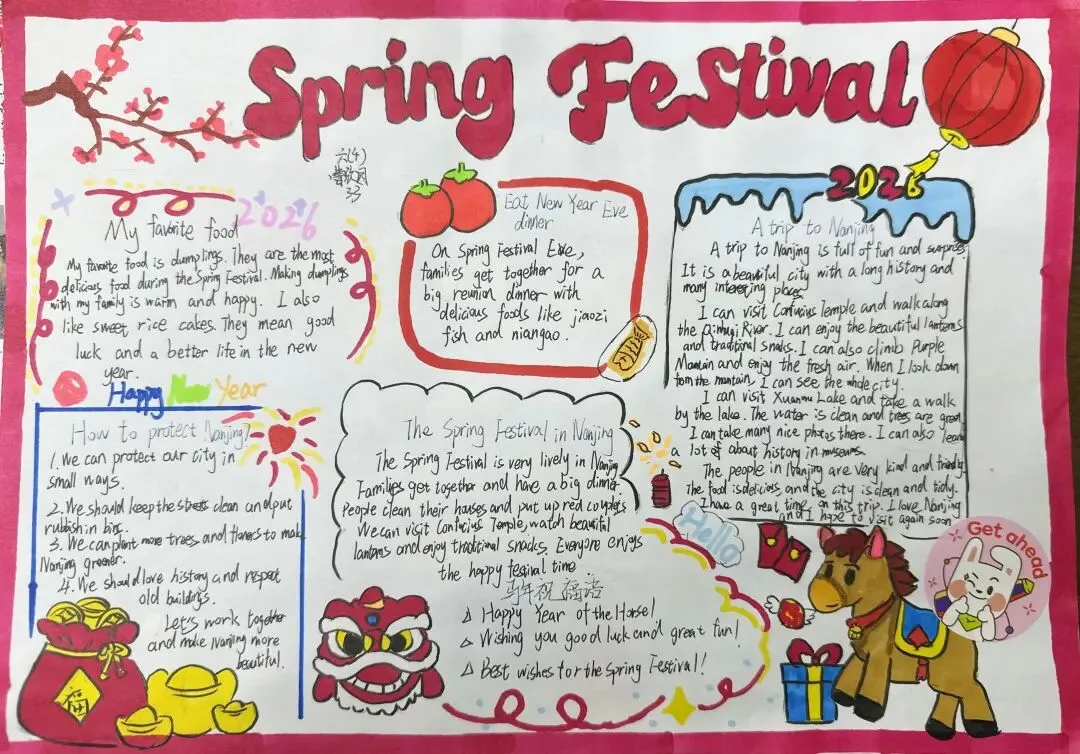 Spring Festival
六(4)
33
2026
My favorite food
My favorite food is dumplings. They are the most
delicious food during the Spring Festival. Making dumplings
with my family is warm and happy. I also
like sweet rice cakes. They mean good
luck and a better life in the new
year.
Happy New Year
Eat New Year Eve
dinner
On Spring Festival Eve,
families get together for a
big reunion dinner with
delicious foods like jiaozi
fish and niangao.
2026
A trip to Nanjing
A trip to Nanjing is full of fun and surprises
It is a beautiful city with a long history and
many interesting places.
I can visit Confucius Temple and walk along
the River. I can enjoy the beautiful lanterns
and traditional snaks. I can also climb Purple
Mountain and enjoy the fresh air. When I look down
from the mountain, I can see the whole city.
I can visit Lake and take a walk
by the lake. The water is clean and trees are green
I can take many nice photos there. I can also learn
a lot of about history in museums.
The people in Nanjing are very kind and friendly
The food is delicious, and the city is clean and tidy.
I have a great time on this trip. I love Nanjing
and I hope to visit again soon
How to protect Nanjing?
1. We can protect our city in
small ways.
2. We should keep the streets clean and put
rubbish in bins.
3. We can plant more trees and flowers to make
Nanjing greener.
4. We should love history and respect
old buildings.
Let's work together
and make Nanjing more
beautiful.
The Spring Festival in Nanjing
The Spring Festival is very lively in Nanjing
Families get together and have a big dinner.
People clean their houses and put up red couplets
We can visit Confucius Temple, watch beautiful
lanterns and enjoy traditional snacks. Everyone enjoys
the happy festival time.
Hello
Get ahead
Happy Year of the Horse!
Wishing you good luck and great fun!
Best wishes for the Spring Festival!
福